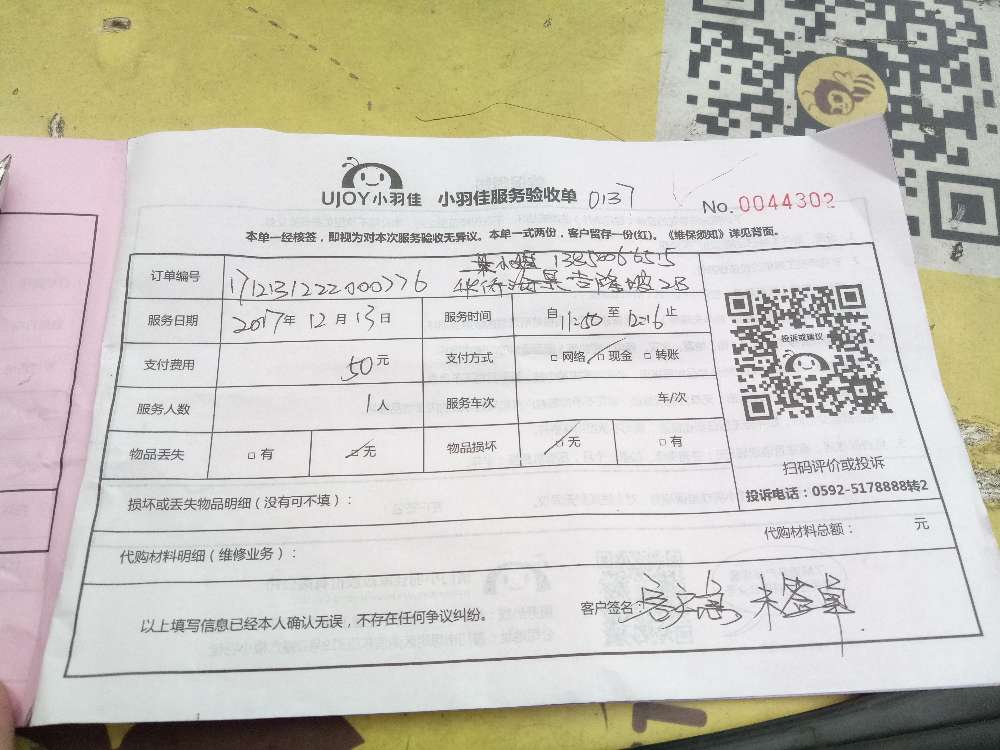 UJOY小羽佳 小羽佳服务验收单 0137
No. 0044302
本单一经核签，即视为对本次服务验收无异议。本单一式两份，客户留存一份(红)。《维保须知》详见背面。
13850066515
订单编号 1712131222000776
服务日期 2017年 12月 13日 服务时间 自 11:50 至 12:16 止
支付费用 50元 支付方式 □网络 □现金 □转账
投诉或建议
服务人数 1人 服务车次 车/次
物品丢失 □有 □无 物品损坏 □无 □有
扫码评价或投诉
损坏或丢失物品明细（没有可不填）：
投诉电话：0592-5178888转2
代购材料明细（维修业务）：
代购材料总额： 元
以上填写信息已经本人确认无误，不存在任何争议纠纷。
客户签名：